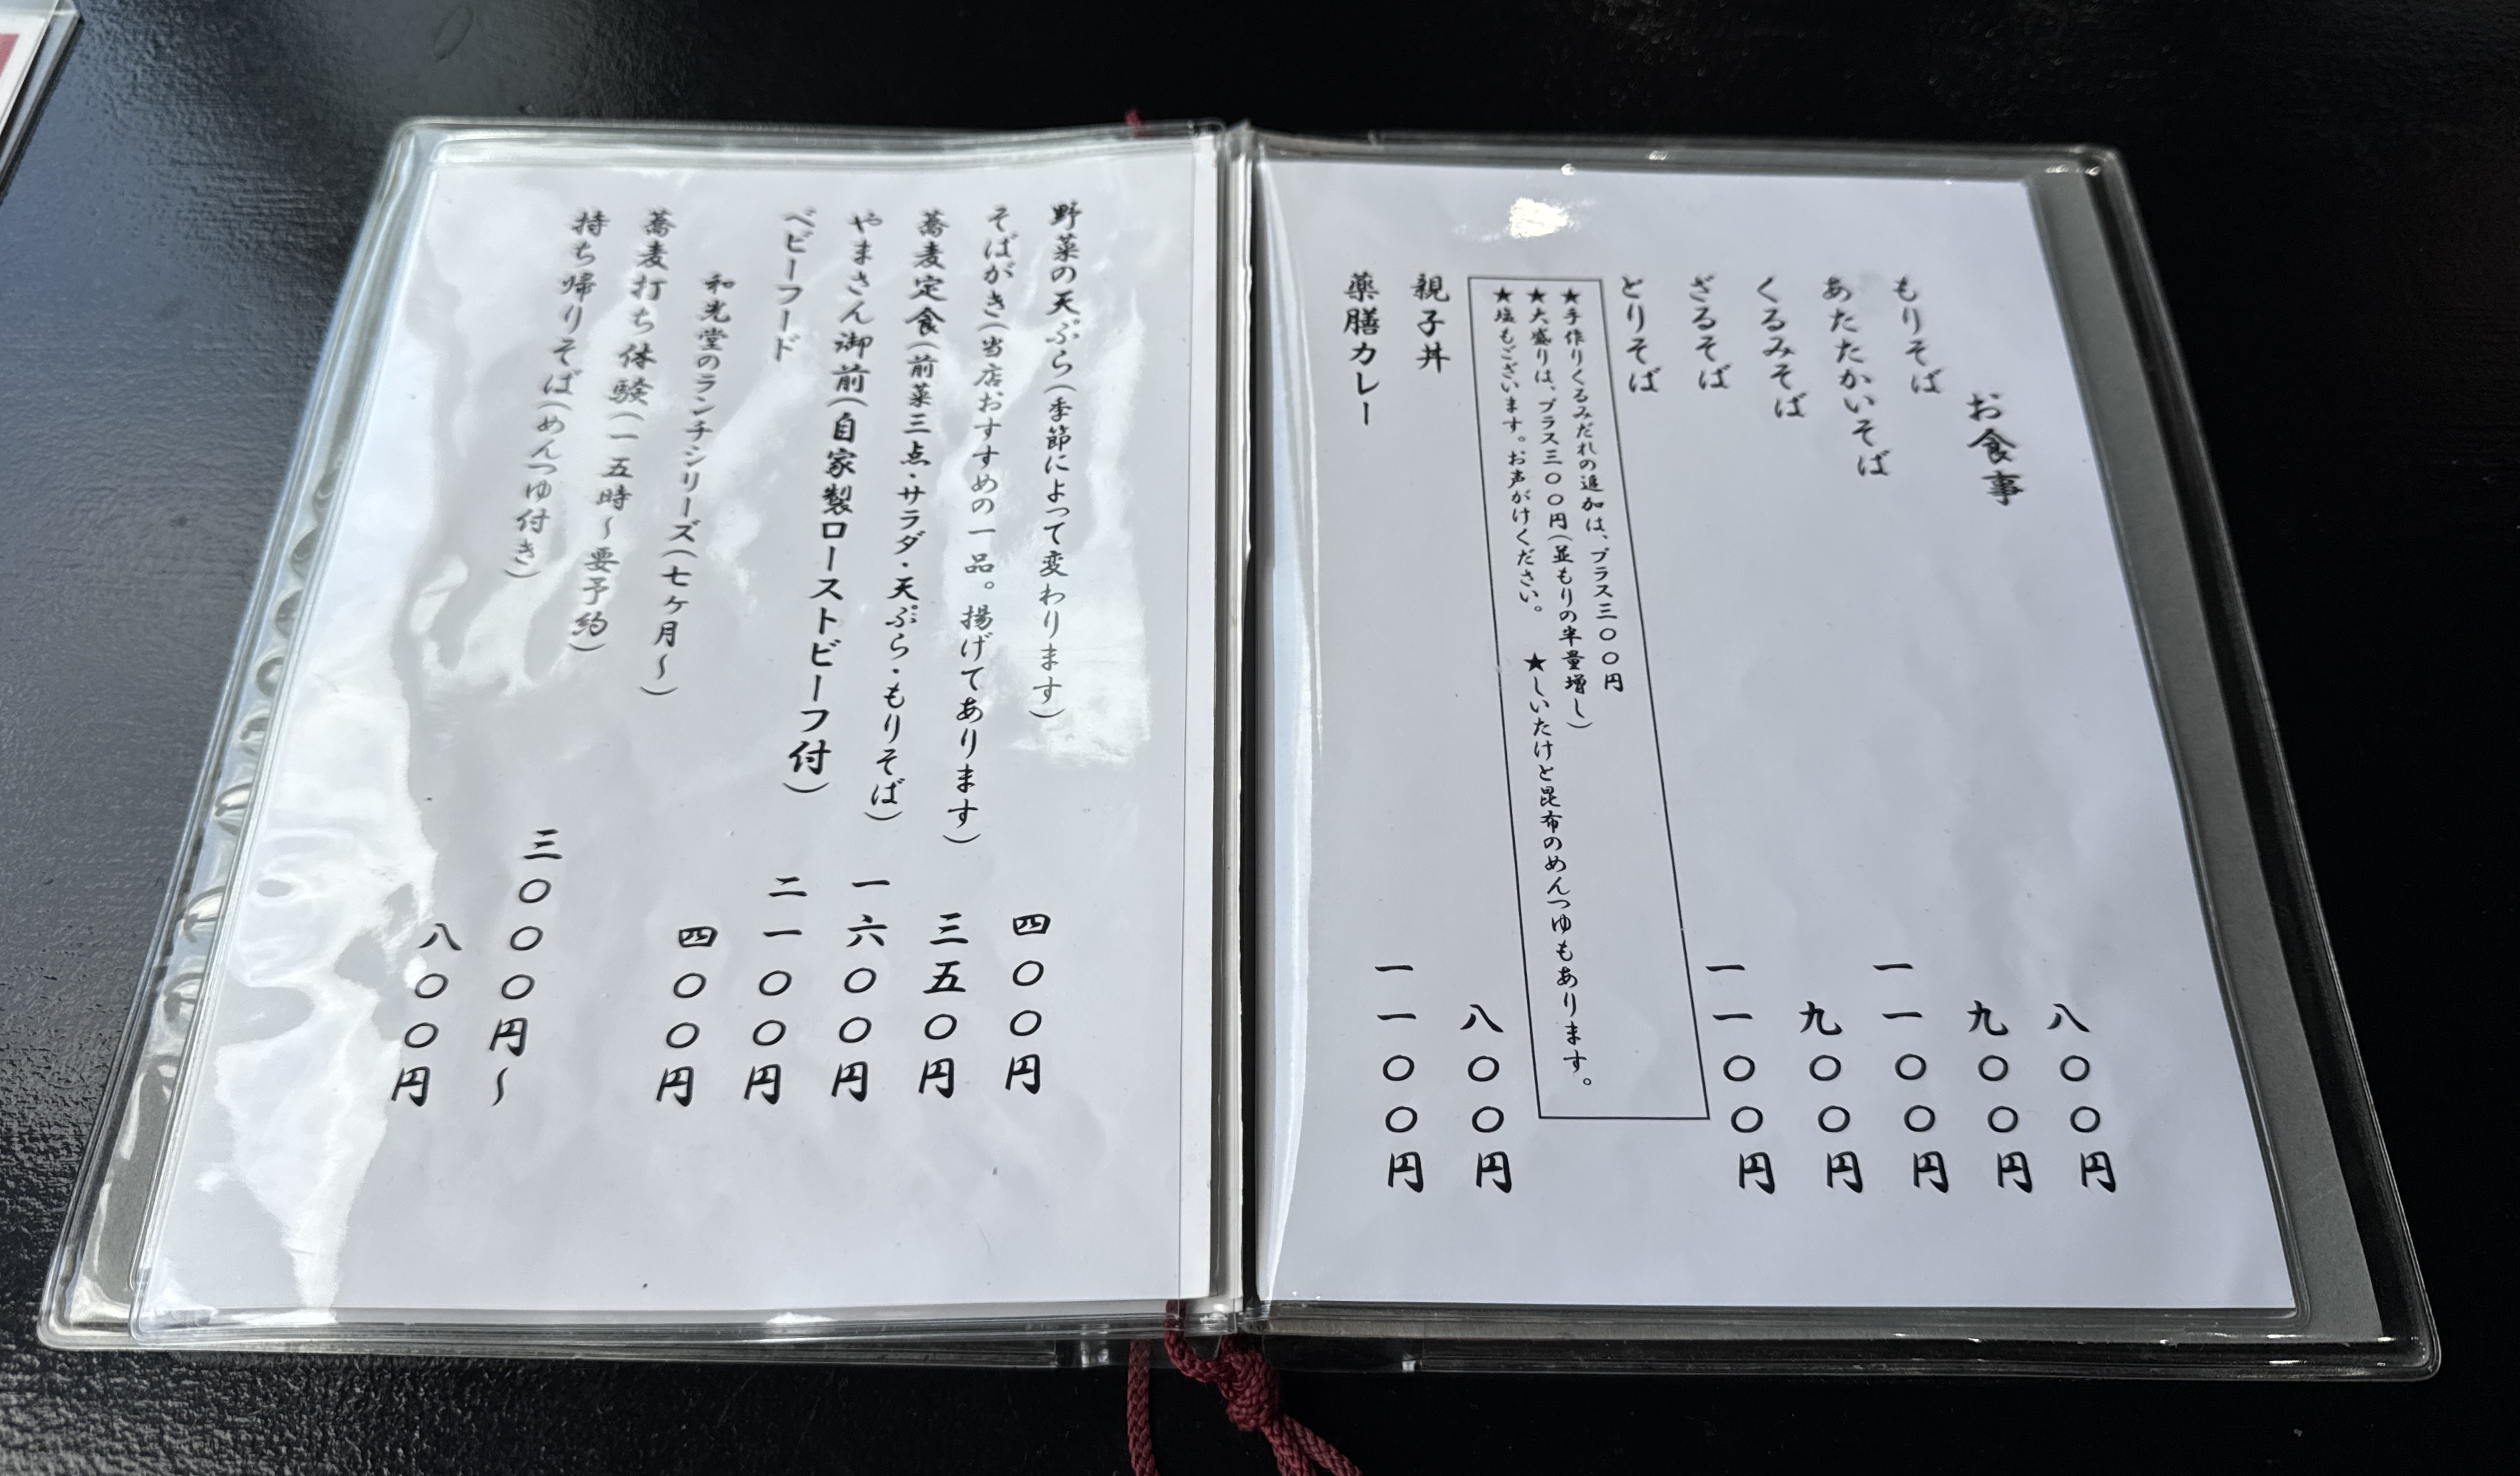 お食事
もりそば 八〇〇円
あたたかいそば 九〇〇円
くるみそば 一一〇〇円
ざるそば 九〇〇円
とりそば 一一〇〇円
★手作りくるみだれの追加は、プラス三〇〇円
★大盛りは、プラス三〇〇円(並もりの半量増し)
★塩もございます。お声がけください。 ★しいたけと昆布のめんつゆもあります。
親子丼 八〇〇円
薬膳カレー 一一〇〇円
野菜の天ぷら(季節によって変わります) 四〇〇円
そばがき(当店おすすめの一品。揚げてあります) 三五〇円
蕎麦定食(前菜三点・サラダ・天ぷら・もりそば) 一六〇〇円
やまさん御前(自家製ローストビーフ付) 二一〇〇円
ベビーフード
和光堂のランチシリーズ(七ヶ月〜) 四〇〇円
蕎麦打ち体験(一五時〜要予約) 三〇〇〇円〜
持ち帰りそば(めんつゆ付き) 八〇〇円